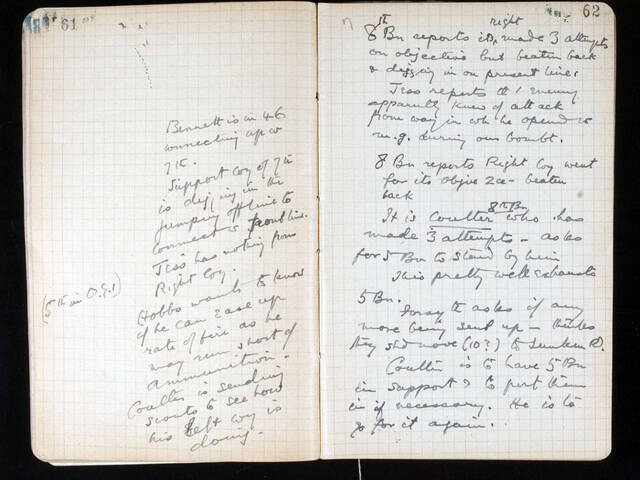 61
Bennett is in 46
connecting up w
7th.
Support Coy of 7th
is digging in the
jumping off line to
connect w front line.
Jess has nothing from
Right Coy.
(5th in O.G.1)
Hobbs wants to know
if he can ease up
rate of fire as he
may run short of
ammunition.
Coulter is sending
scouts to see how
his left coy is
doing.
62
right
8th Bn reports its made 3 attempts
on objective but beaten back
& digging in on present line.
Jess reports tt enemy
apparently knew of attack
from way in wh he opened w
m.g. during our bombt.
8 Bn reports Right Coy went
for its objve 2ce - beaten
back
8th Bn
It is Coulter who has
made 3 attempts - asks
for 5 Bn to stand by him
This pretty well exhausts
5 Bn.
Forsyth asks if any
more being send up - thinks
they shd move (10?) to Sunken R.
Coulter is to have 5 Bn
in support & to put them
in if necessary. He is to
go for it again.